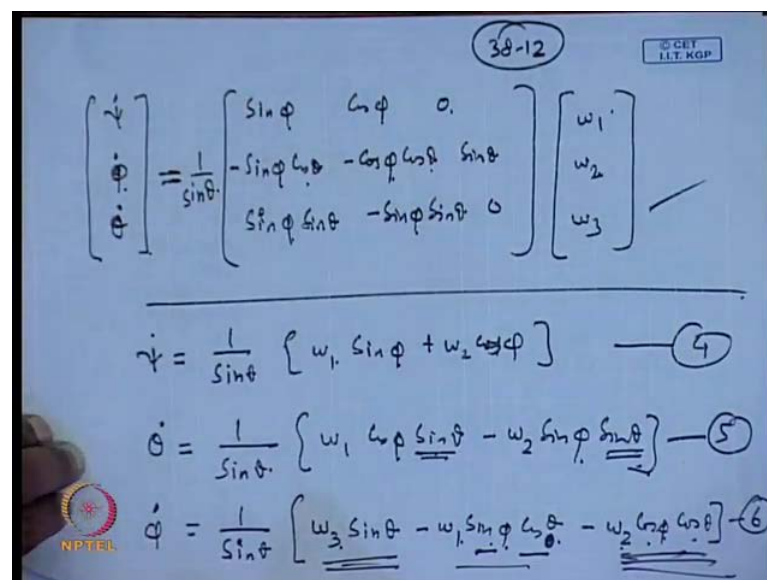 38-12
© CET
I.I.T. KGP
[ψ̇ φ̇ θ̇] = 1/sinθ. [Sinφ Cosφ 0. ; -Sinφ Cosθ -Cosφ Cosθ Sinθ ; Sinφ Sinθ -Sinφ Sinθ 0] [ω1 ω2 ω3]
ψ̇ = 1/Sinθ { ω1. Sinφ + ω2 Cosφ ] — 4
θ̇ = 1/Sinθ. { ω1 Cosφ Sinθ - ω2 Sinφ Sinθ } — 5
φ̇ = 1/Sinθ [ ω3 Sinθ - ω1. Sinφ Cosθ - ω2 Cosφ Cosθ ] - 6
NPTEL